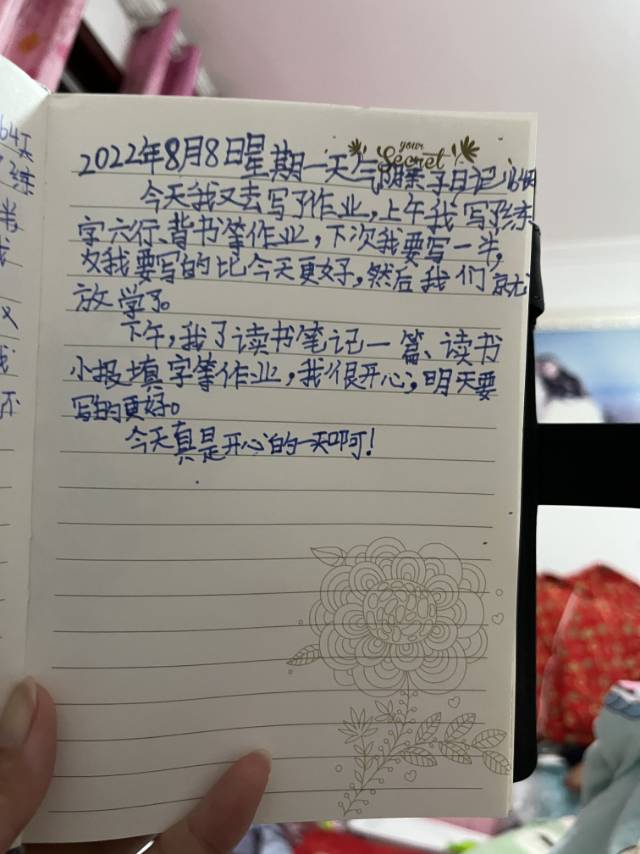 your
Secret
2022年8月8日星期一天气阴亲子日记
今天我又去写了作业,上午我写了练
字六行、背书等作业,下次我要写一半,
我要写的比今天更好,然后我们就
放学了。
下午,我了读书笔记一篇、读书
小报填字等作业,我很开心,明天要
写的更好。
今天真是开心的一天啊!